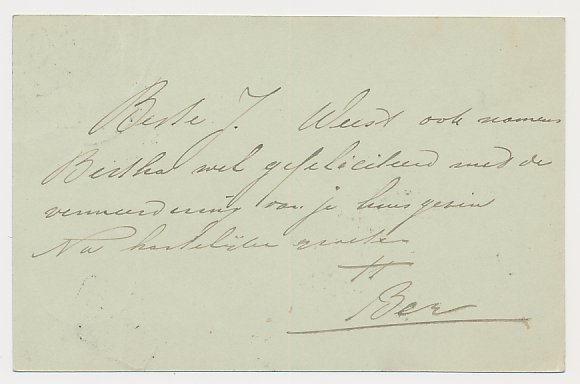 Beste J. Weest ook namens
Bertha wel gefeliciteerd met de
vermeerdering van je huisgezin
Na hartelijke groeten
tt
Ber